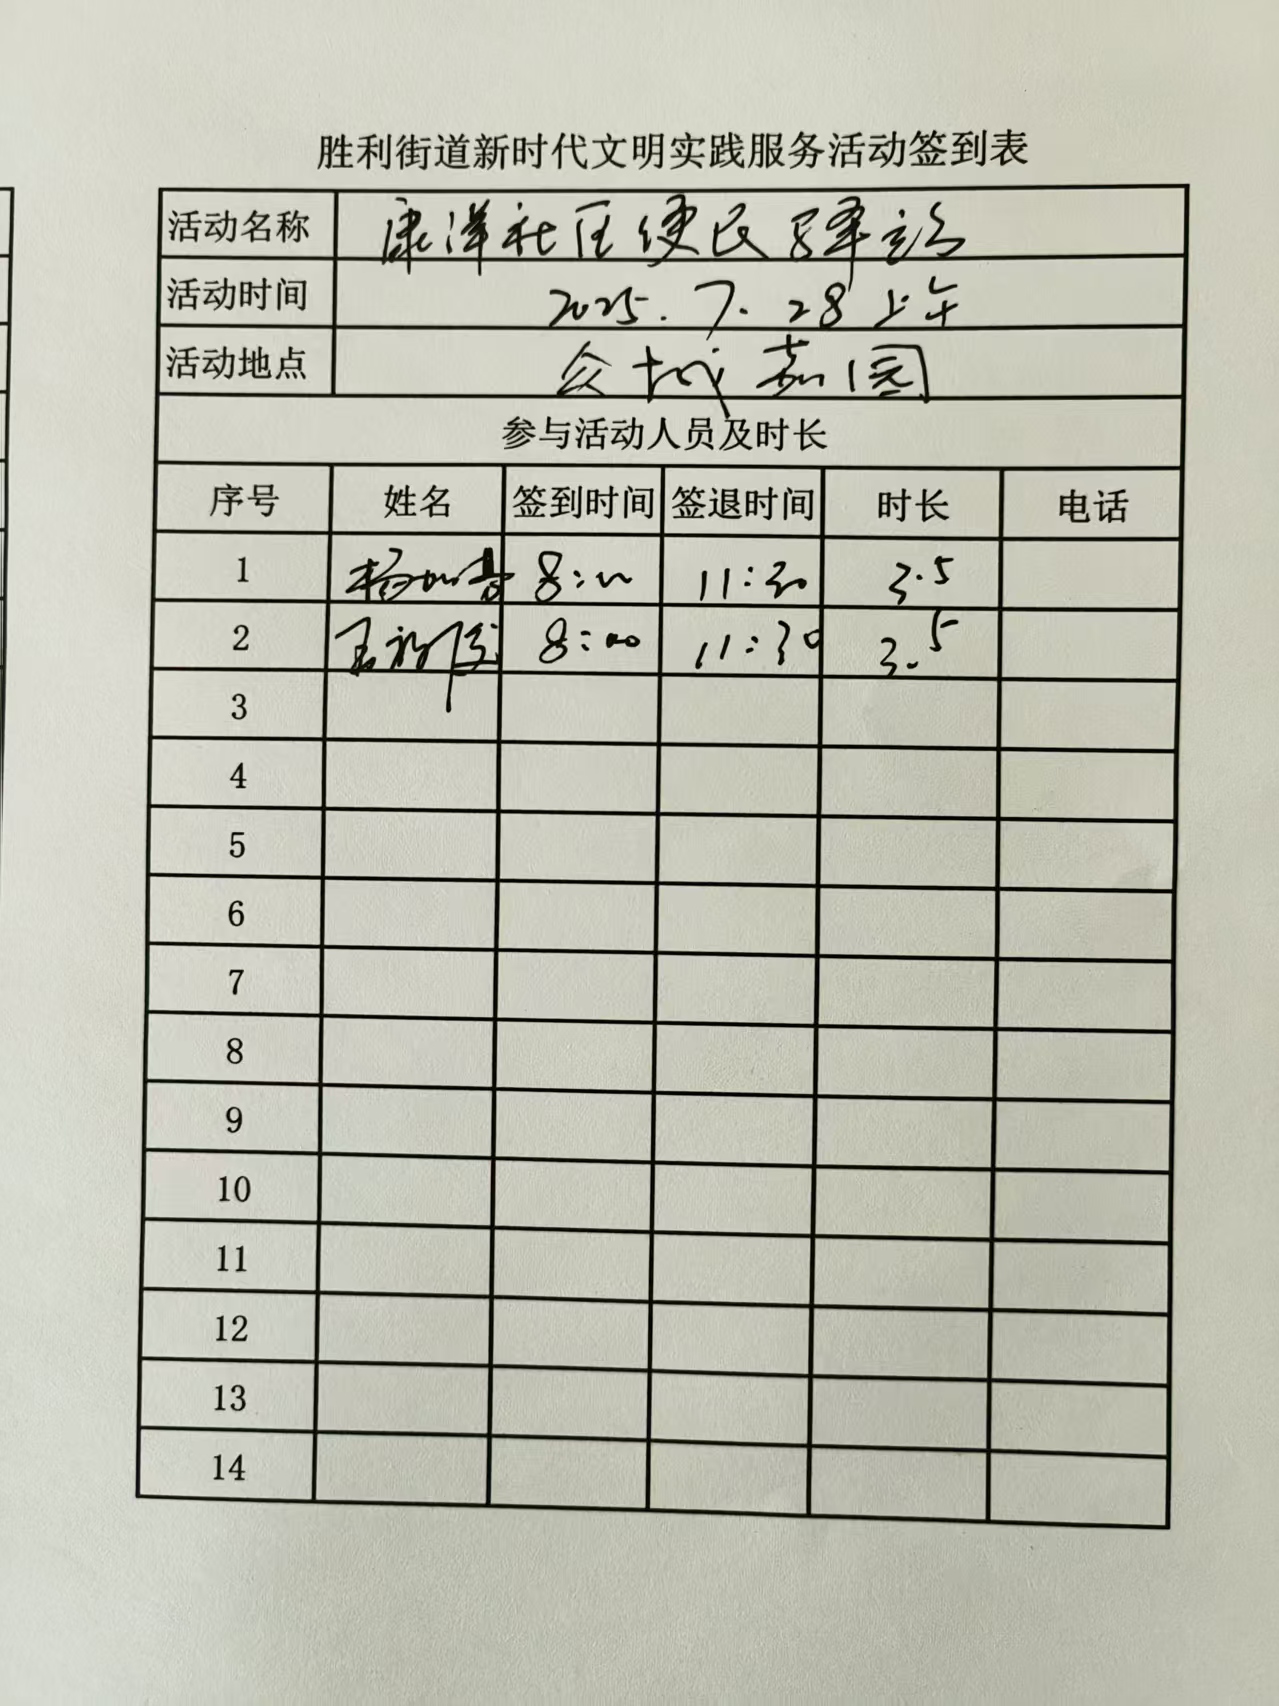 胜利街道新时代文明实践服务活动签到表
活动名称 康洋社区便民驿站
活动时间 2025.7.28上午
活动地点 众城嘉园
参与活动人员及时长
序号 姓名 签到时间 签退时间 时长 电话
1 8:00 11:30 3.5
2 8:00 11:30 3.5
3
4
5
6
7
8
9
10
11
12
13
14